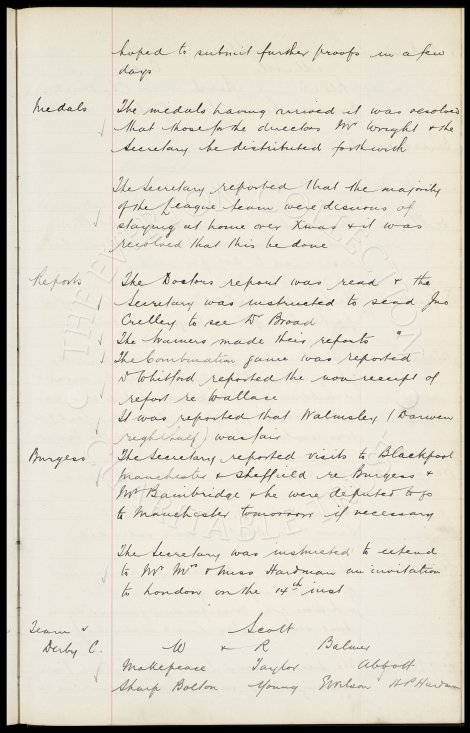 hoped to submit further proofs in a few
days
Medals The medals having arrived it was resolved
that those for the directors Mr Wright & the
Secretary be distributed forthwith
The Secretary reported that the majority
of the League team were desirous of
staying at home over Xmas & it was
resolved that this be done
Reports The Doctors report was read & the
Secretary was instructed to send Jno
Crelley to see Dr Broad
The Trainers made their reports
The Combination game was reported
Dr Whitford reported the non receipt of
report re Wallace
It was reported that Walmsley (Darwen
right half) was fair
Burgess The Secretary reported visits to Blackpool
Manchester & Sheffield re Burgess &
Mr Bainbridge & he were deputed to go
to Manchester tomorrow if necessary
The Secretary was instructed to extend
to Mr Mrs & Miss Hardman an invitation
to London on the 14th inst
Team v Scott
Derby C. W & R Balmer
Makepeace Taylor Abbott
Sharp Bolton Young G Wilson H P Hardman